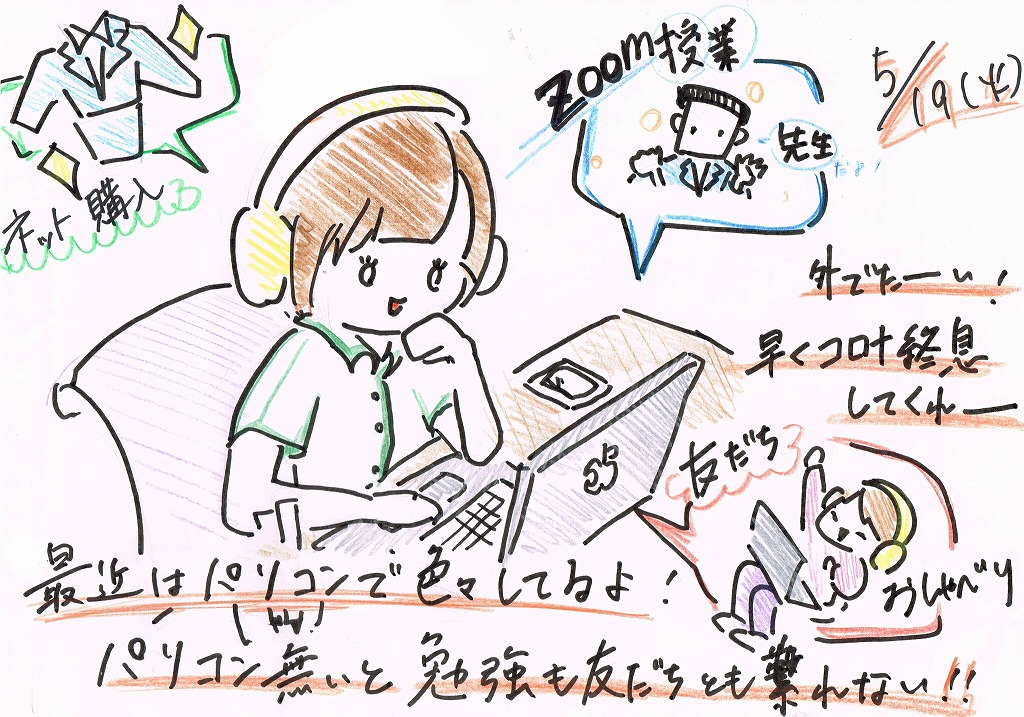 Zoom授業
5/19
先生
だよ!
ネット購入
外でたーい!
早くコロナ終息
してくれー
友だち
おしゃべり
最近はパソコンで色々してるよ!
パソコン無いと勉強も友だちとも れない!!